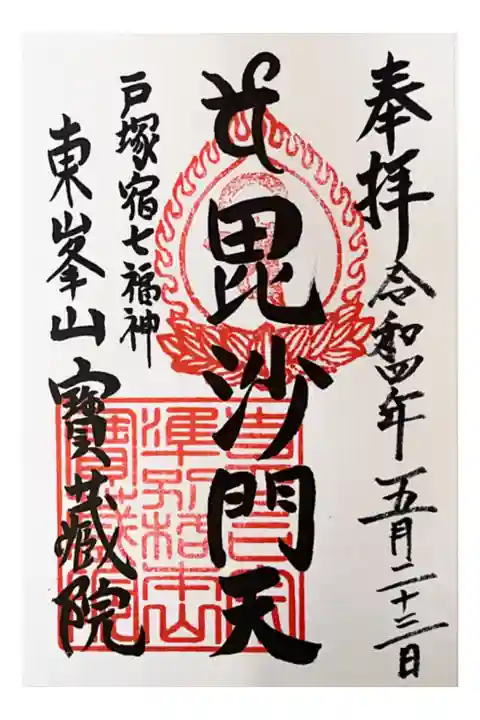 奉拝 令和四年 五月二十三日
毘沙門天
戸塚宿七福神
東峯山 寶藏院